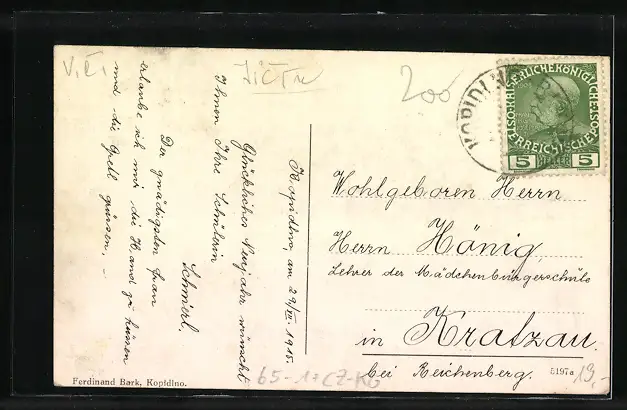 V. Č.
JIČÍN
200
KOPIDLNO
KAISERLICHE KÖNIGLICHE
ÖSTERREICHISCHE POST
5 HELLER 5
Kopidlno, am 29/XII. 1915.
Glückliches Neujahr wünscht
Ihnen Ihre Schülerin
Schmierl,
Der gnädigsten Frau
erlaube ich mir die Hand zu küssen
und die Gretl grüssen. –
Wohlgeboren Herrn
Herrn Hönig,
Lehrer der Mädchenbürgerschule
in Kratzau.
bei Reichenberg.
Ferdinand Bark, Kopidlno.
65-17 CZ-KG
5197a
19,-